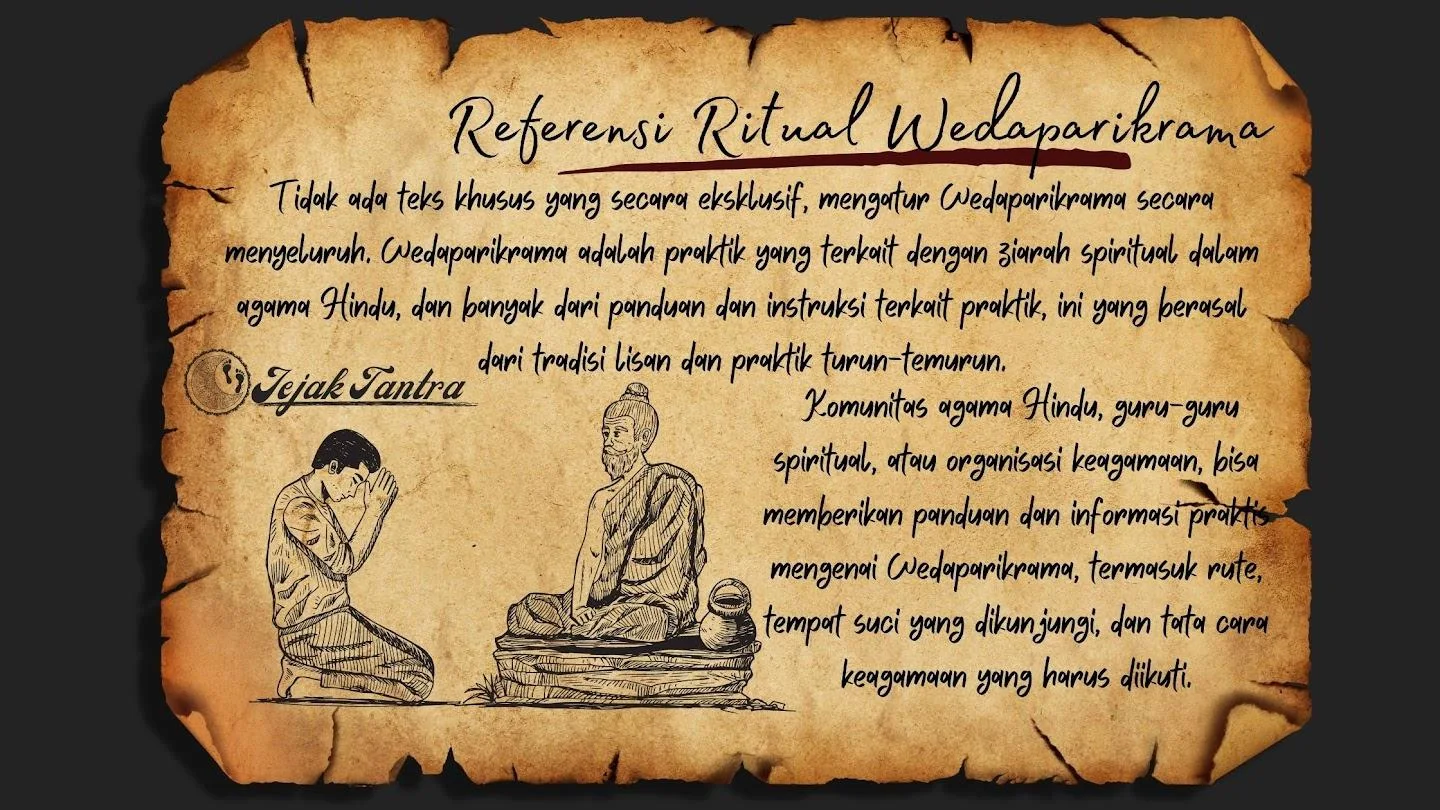 Referensi Ritual Wedaparikrama
Tidak ada teks khusus yang secara eksklusif, mengatur Wedaparikrama secara
menyeluruh. Wedaparikrama adalah praktik yang terkait dengan ziarah spiritual dalam
agama Hindu, dan banyak dari panduan dan instruksi terkait praktik, ini yang berasal
dari tradisi lisan dan praktik turun-temurun.
Jejak Tantra
Komunitas agama Hindu, guru-guru
spiritual, atau organisasi keagamaan, bisa
memberikan panduan dan informasi praktis
mengenai Wedaparikrama, termasuk rute,
tempat suci yang dikunjungi, dan tata cara
keagamaan yang harus diikuti.